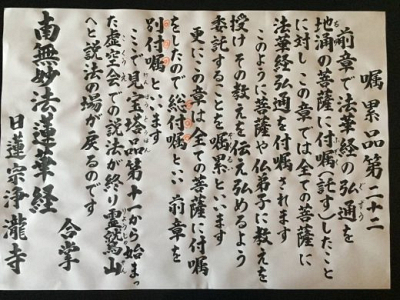 嘱累品第二十二
前章で法華経の弘通を
地涌の菩薩に付嘱(託す)したこと
に対しこの章では全ての菩薩に
法華経弘通を付嘱されます
このように菩薩や仏弟子に教えを
授けその教えを伝え弘めるよう
委託することを嘱累といいます
更にこの章は全ての菩薩に付嘱
をしたので総付嘱といい前章を
別付嘱といいます
ここで見宝塔品第十一から始まっ
た虚空会での説法が終り霊鷲山
へと説法の場が戻るのです
合掌
南無妙法蓮華経
日蓮宗浄瀧寺